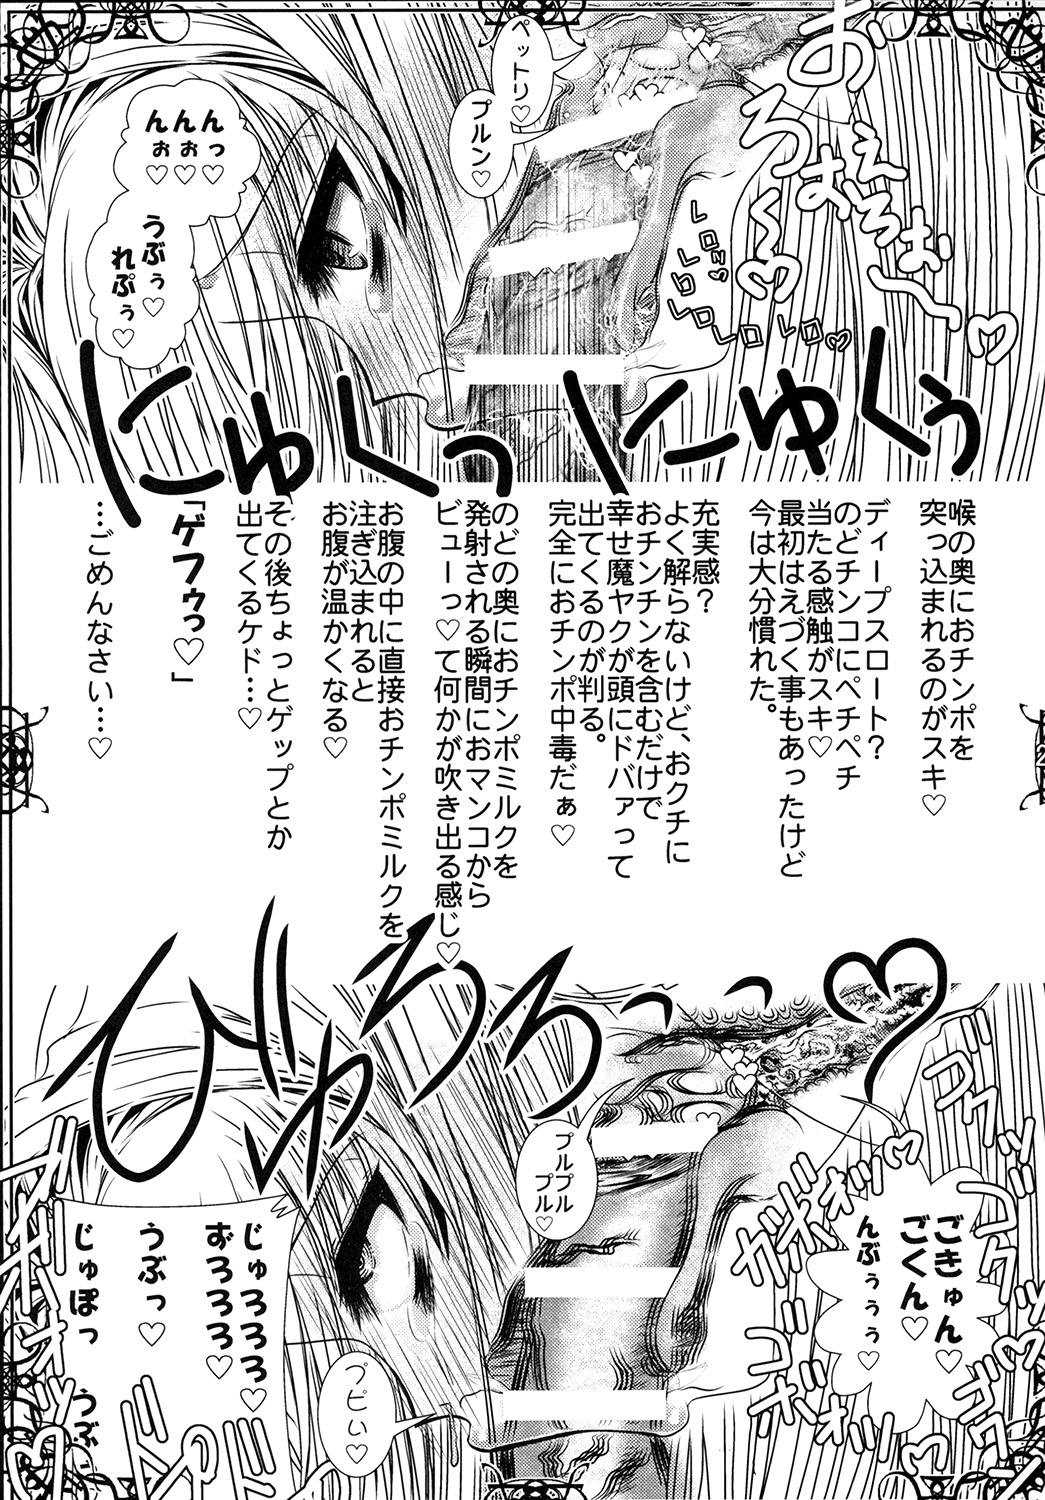 ペットリ♡
プルン♡
んっ♡
んぉ♡
んぉ♡
うぶぅ♡
れぷぅ♡
にゅくっにゅくぅ
喉の奥におチンポを
突っ込まれるのがスキ♡
ディープスロート?
のどチンコにペチペチ
当たる感触がスキ♡
最初はえづく事もあったけど
今は大分慣れた。
充実感?
よく解らないけど、おクチに
おチンチンを含むだけで
幸せ魔ヤクが頭にドバァって
出てくるのが判る。
完全におチンポ中毒だぁ♡
のどの奥におチンポミルクを
発射される瞬間におマンコから
ビューーって♡何かが吹き出る感じ♡
お腹の中に直接おチンポミルクを
注ぎ込まれると
お腹が温かくなる♡
その後ちょっとゲップとか
出てくるケド…♡
「ゲフゥっ♡」
…ごめんなさい…♡
びゅろろっっ♡
プルプル
プル♡
ごきゅん♡
ごくん♡
んぶぅぅぅ♡
じゅろろろ♡
ずろろろ♡
うぶっ♡
じゅぽっ
うぶ
プピぃ♡